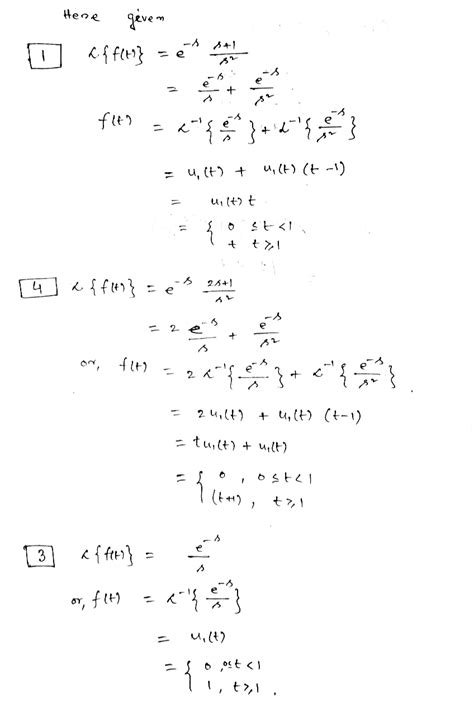 Here given
1 ℒ{f(t)} = e^-s (s+1)/s²
= e^-s/s + e^-s/s²
f(t) = ℒ^-1{e^-s/s} + ℒ^-1{e^-s/s²}
= u₁(t) + u₁(t) (t-1)
= u₁(t) t
= { 0 ≤ t < 1
t t ≥ 1
4 ℒ{f(t)} = e^-s (2s+1)/s²
= 2 e^-s/s + e^-s/s²
or, f(t) = 2 ℒ^-1{e^-s/s} + ℒ^-1{e^-s/s²}.
= 2u₁(t) + u₁(t) (t-1)
= tu₁(t) + u₁(t)
= { 0 , 0 ≤ t < 1
(t+1) , t ≥ 1
3 ℒ{f(t)} = e^-s/s
or, f(t) = ℒ^-1{e^-s/s}
= u₁(t)
= { 0 , 0≤t < 1
1 , t ≥ 1 .